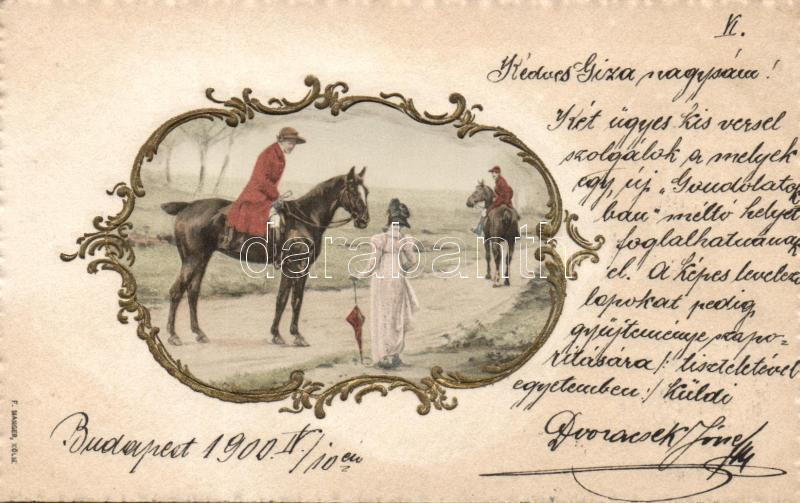 VI.
Kedves Giza nagysám!
Két ügyes kis versel
szolgálok a melyek
egy, új "Gondolatok
ban" méltó helyet
foglalhatnának
el. A képes levelező
lapokat pedig,
gyűjteménye szapo-
rítására /: tisztelettel
egyetemben :/ küldi
Dvoracsek
Budapest 1900. IV/10én
F. MANGER, KÖLN.
darabanth
.com